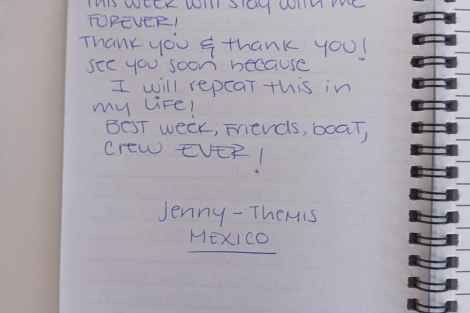 This week will stay with me
FOREVER!
Thank you & thank you!
see you soon because
I will repeat this in
my LiFe!
BEST week, Friends, boat,
crew EVER!
Jenny - Themis
MEXICO